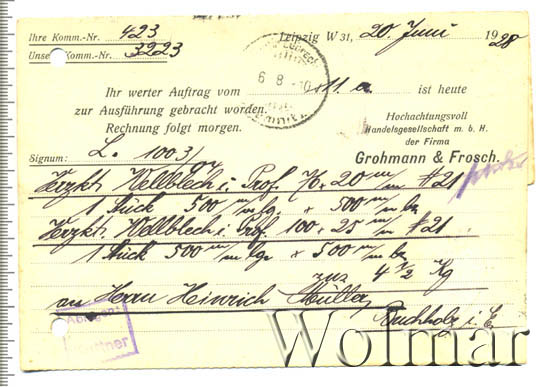 Ihre Komm.-Nr. 423
Leipzig W 31, 20. Juni 1928
Unsere Komm.-Nr. 3223
6 8
Ihr werter Auftrag vom 11. a ist heute
zur Ausführung gebracht worden.
Rechnung folgt morgen.
Hochachtungsvoll
Handelsgesellschaft m. b. H.
der Firma
Grohmann & Frosch.
Signum: L. 1003/
Verzkt. Wellblech i. Prof. 20 m/m #21
1 Stück 500 m/m lg. x 500 m/m br
Verzkt. Wellblech i. Prof. 100. 25 m/m #21
1 Stück 500 m/m lg. x 500 m/m br
zus 4 1/2 Kg
an Herrn Heinrich Müller
Buchholz i. E.
Wolmar